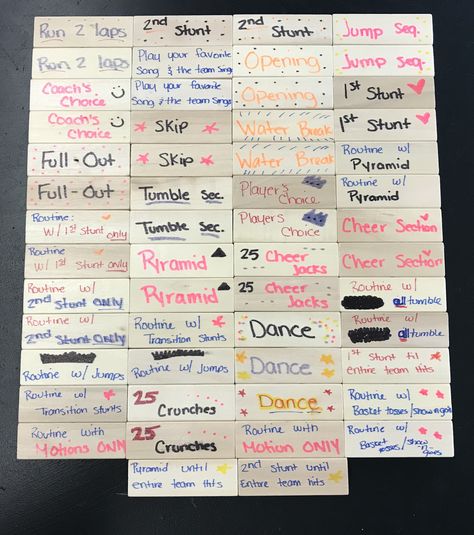 Run 2 laps
2nd Stunt
2nd Stunt
Jump Seq.
Run 2 laps
Play your favorite
Song & the team sings
Opening
Jump Seq.
Coach's
Choice
Play your favorite
Song & the team sings
Opening
1st Stunt
Coach's
Choice
Skip
Water Break
1st Stunt
Full-Out
Skip
Water Break
Routine w/
Pyramid
Full-Out
Tumble Sec.
Player's
Choice
Routine w/
Pyramid
Routine:
w/ 1st stunt only
Tumble Sec.
Players
Choice
Cheer Section
Routine
w/ 1st stunt only
Pyramid
25 Cheer
Jacks
Cheer Section
Routine w/
2nd Stunt ONLY
Pyramid
25 Cheer
Jacks
Routine w/
all tumble
Routine w/
2nd Stunt ONLY
Routine w/
Transition Stunts
Dance
Routine w/
all tumble
Routine w/ Jumps
Routine w/ Jumps
Dance
1st Stunt til
entire team hits
Routine w/
Transition stunts
25
Crunches
Dance
Routine w/
Basket tosses/show n goes
Routine with
Motions ONLY
25
Crunches
Routine with
Motion ONLY
Routine w/
Basket tosses/show n goes
Pyramid until
entire team hits
2nd Stunt until
entire team hits